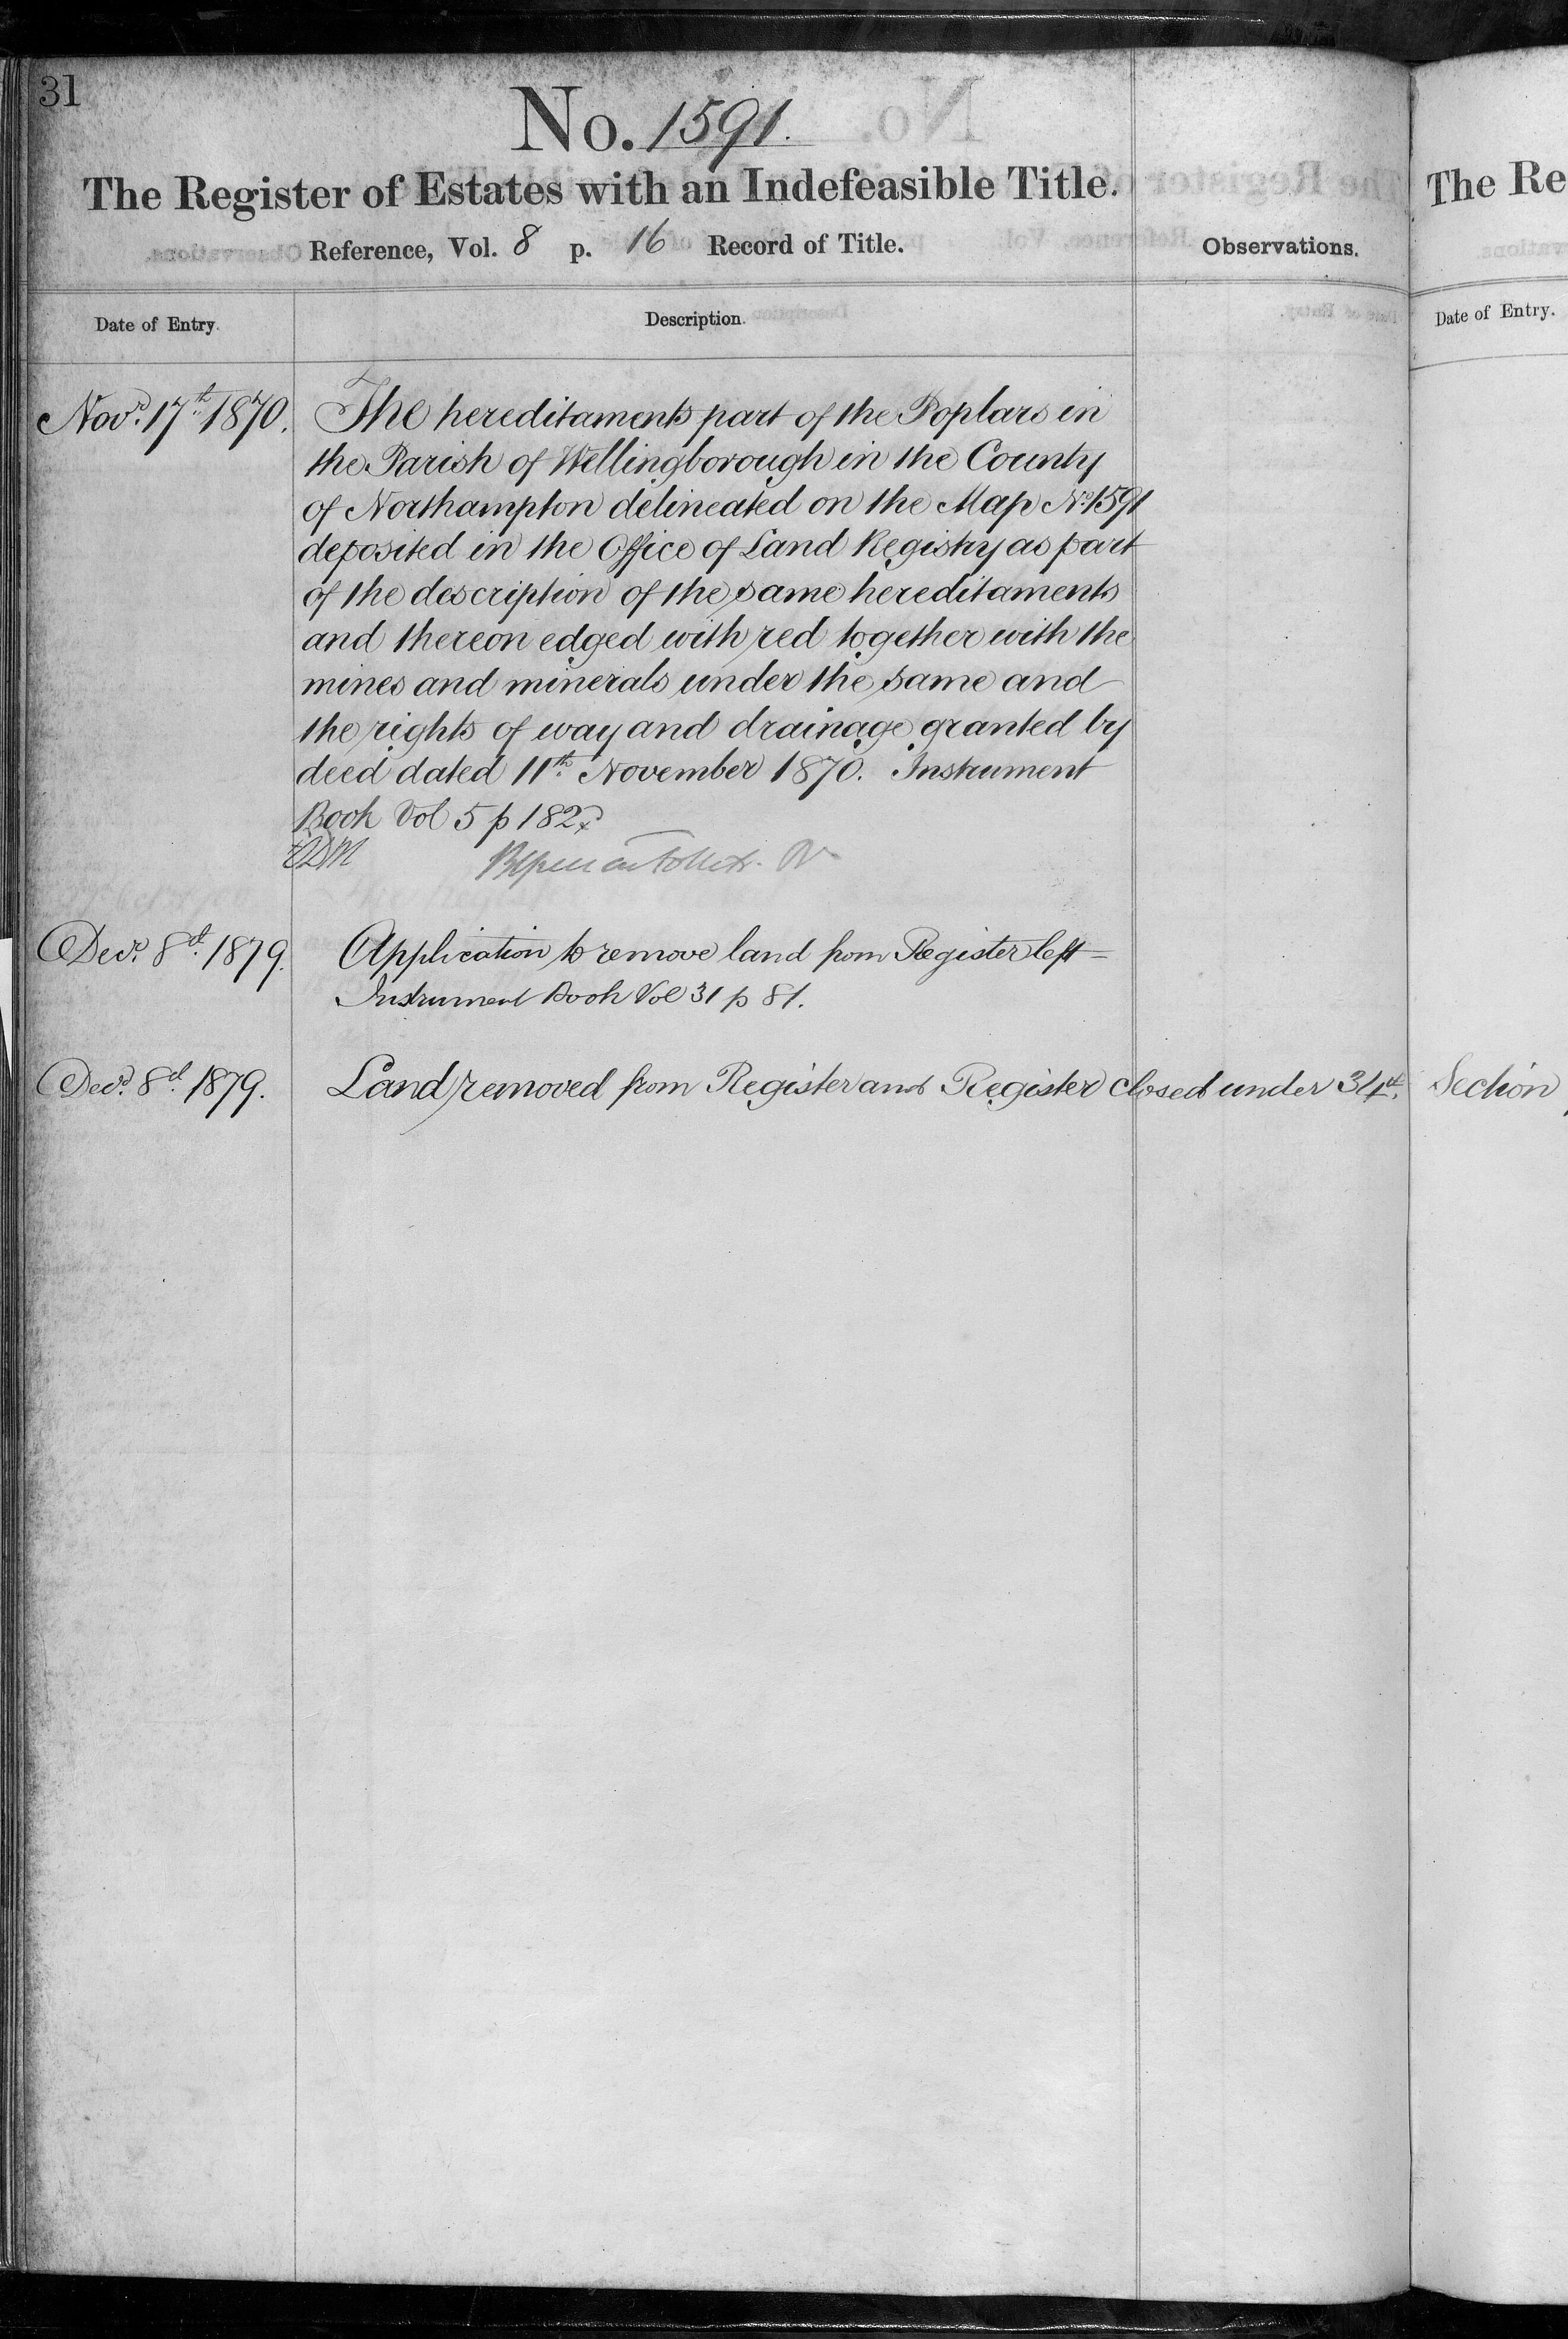 31
No. 1591.
The Register of Estates with an Indefeasible Title.
Reference, Vol. 8 p. 16 Record of Title.
Observations.
Date of Entry.
Description.
Novr. 17th 1870.
The hereditaments part of the Poplars in
the Parish of Wellingborough in the County
of Northampton delineated on the Map No. 1591
deposited in the Office of Land Registry as part
of the description of the same hereditaments
and thereon edged with red together with the
mines and minerals under the same and
the rights of way and drainage granted by
deed dated 11th November 1870. Instrument
Book Vol 5 p 182
Decr. 8th 1879.
Application to remove land from Register left =
Instrument Book Vol 31 p 81.
Decr. 8th 1879.
Land removed from Register and Register closed under 34th Section
The Re
Date of Entry.